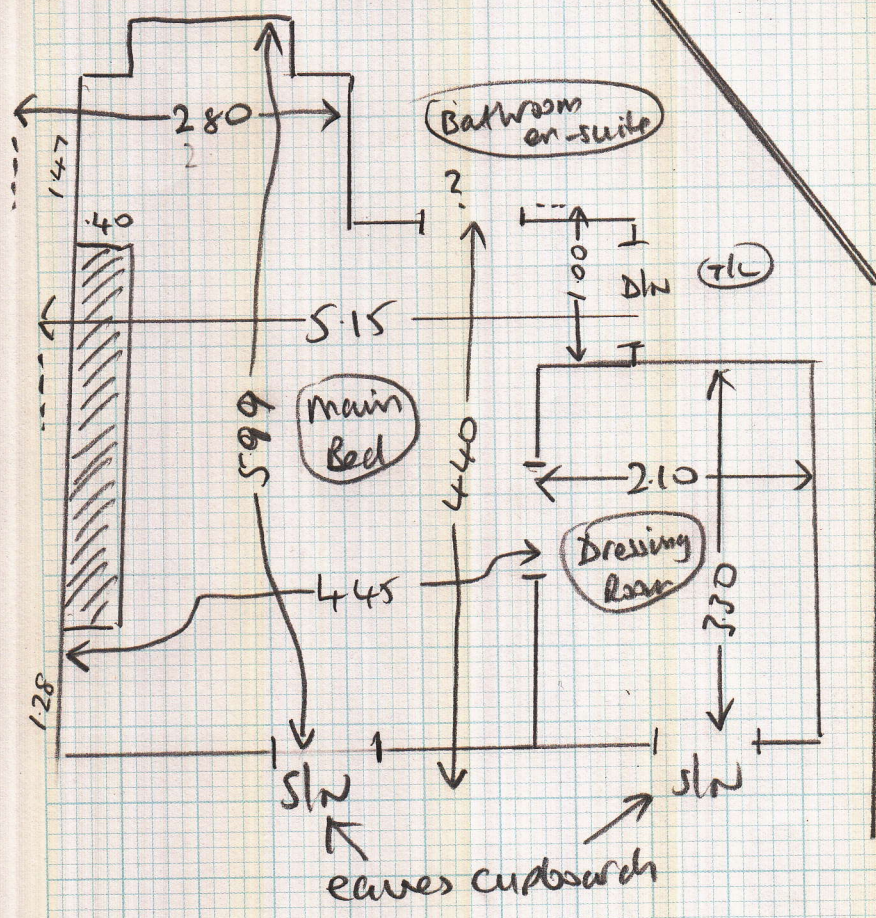 280
2
Bathroom
en-suite
1.47
?
.40
1.00
D/N
T/L
5.15
Main
Bed
599
440
2.10
Dressing
Room
445
3.30
1.28
S/N
S/N
eaves cupboards